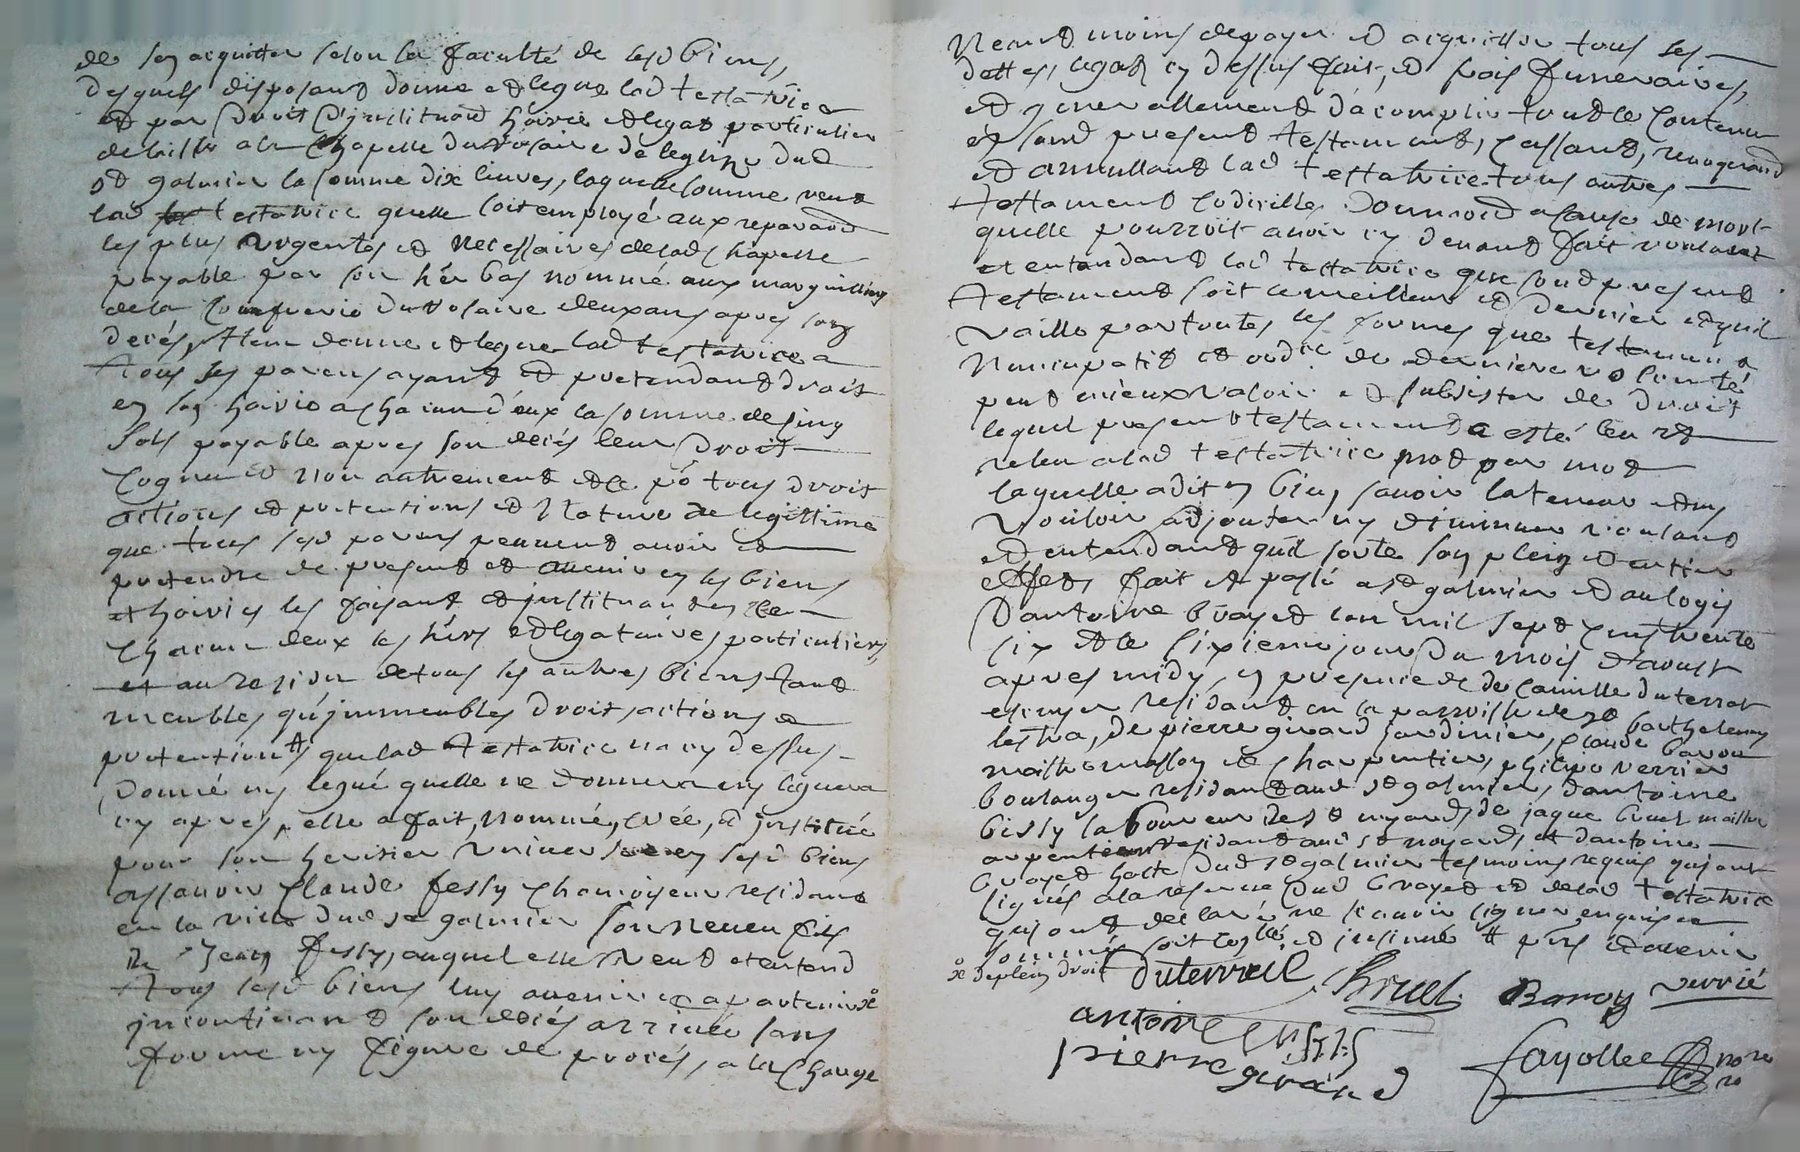 de sen acquitter selon la faculté de sesd biens,
desquels disposant donne et legue lad testatrice
et par droit d'jnstituaõn hoirie et legat particulier
delaisse a la Chapelle du rosaire de leglize dud
st galmier la somme dix livres, laquelle somme veut
lad testatrice quelle soit employé aux reparaõns
les plus urgentes et necessaires de lad chapelle
payable par son hér bas nommé aux marguilliers
de la Confrerie du rosaire deux ans apres son
decés, Item donne et legue lad testatrice a
tous ses parens ayant et pretendant droit
en son hoirie a chacun d'eux la somme de sinq
sols payable apres son decés leur droit
Cognu et non autrement et ce pō tous droit
actions et pretentions et nature de legittime
que tous sesd parens peuvent avoir et
pretendre de present et avenir en ses biens
et hoirie les faisant et jnstituan den ce
chacun deux ses hérs et legataires particuliers
et au residu de tous ses autres biens tant
meubles qu'jmmeubles droits actions et
pretentions que lad testatrice na cy dessus
donné ny legué quelle ne donnera ny leguera
cy apres, elle a fait, nommé, créé, et jnstitué
pour son heritier universel en sesd biens
assavoir Claude fessy chamoyeur residant
en la ville dud st galmier son neveu fils
de Jean fessy, auquel elle veut et entend
tous sesd biens luy avenir et apartenir x
jncontinant son decés arrivé sans
forme ny figure de procés, a la charge
Neant moins de payer et acquitter tous ses
dettes, legat cy dessus fait, et frais funeraires,
et generallement d'acomplir tout le contenu
et sond present testament, cassant, revoquant
et annullant lad testatrice tous autres
testament codicilles donnaõns a cause de mort
quelle pourroit avoir cy devant fait voulant
et entendant lad testatrice que sond present
testament soit le meilleur et dernier et quil
vaille par toutes les formes que testament
nuncupatif et ordre de derniere volonté
peut mieux valoir et subsister de droit
lequel present testament a esté leu et
releu a lad testatrice mot par mot
laquelle a dit y bien savoir la teneur et ny
vouloir adjouter ny diminuer voulant
et entendant quil sorte son plein et entier
effet, fait et passé a st galmier et au logis
d'antoine buyet lan mil sept cens trente
six et le sixieme jour du mois d'aoust
apres midy, en presence de de camille duterrail
escuyer residant en la parroisse de st barthelemy
lestra, de pierre girard jardinier, claude baron
maitre masson et charpentier, philipe verrier
boulanger residant aud st galmier, d'antoine
bissy laboureur de st myard de jaque bruel maitre
arpenteur residant aud st myard, et d'antoine
buyet hoste dud st galmier tesmoins requis qui ont
signés a la reserve dud buyet et de lad testatrice
qui ont declaré ne scavoir signer enquis et
sommés soit scellé et jnsinué # pns et avenir
x de plein droit
duterrail Bruel Baron verrié
antoine bissy
pierre girard
fayolle no re